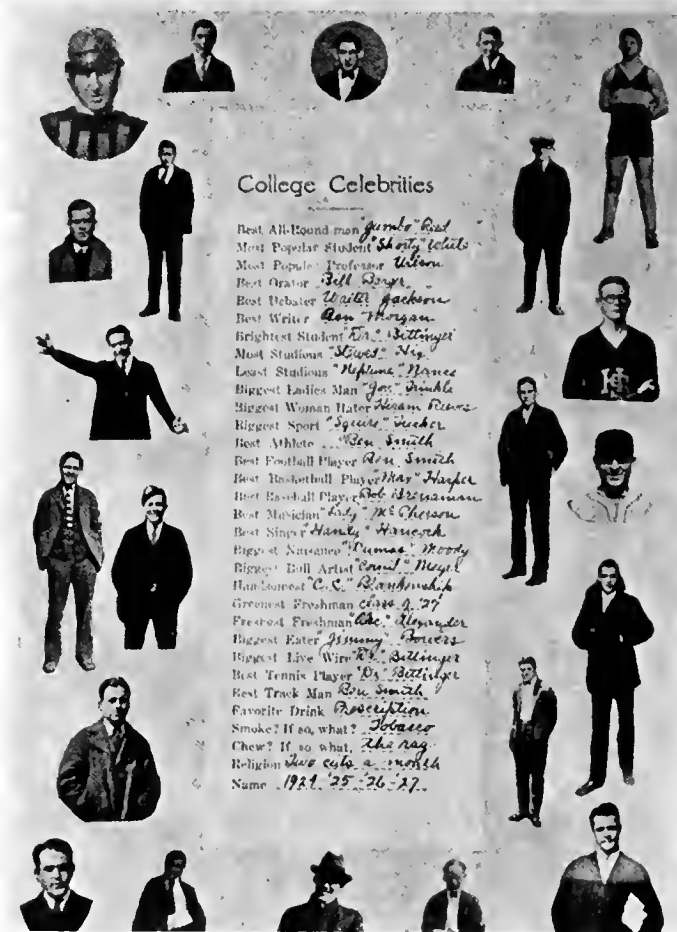 College Celebrities
Best All-Round man "Jumbo" Reid
Most Popular Student "Shorty"
Most Popular Professor Wilson
Best Orator Bill
Best Debater Walter Jackson
Best Writer Morgan
Brightest Student "Dr." Bittinger
Most Studious Hix
Least Studious "Neptune" Nance
Biggest Ladies Man "Joe" Trinkle
Biggest Woman Hater Hiram Reeves
Biggest Sport "Squire" Tucker
Best Athlete Ben Smith
Best Football Player Ben Smith
Best Basketball Player "Max" Harper
Best Baseball Player Bob
Best Musician "Lady" McPherson
Best Singer "Handy" Hancock
Biggest Nuisance "Dumas" Moody
Biggest Bull Artist Meyer
Handsomest "C.C." Blankenship
Greenest Freshman class of '27
Freshest Freshman "Abe" Alexander
Biggest Eater "Jimmy" Bowers
Biggest Live Wire "Dr." Bittinger
Best Tennis Player "Dr." Bittinger
Best Track Man Ben Smith
Favorite Drink Prescription
Smoke? If so, what? Tobacco
Chew? If so what, the rag
Religion Two cuts a month
Name 1924 '25 - '26 - '27